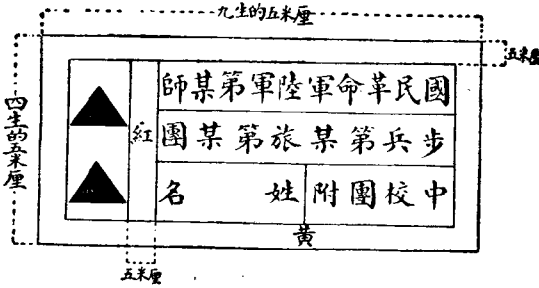 九生的五米厘
五米厘
四生的五米厘
國民革命軍陸軍第某師
步兵第某旅第某團
中校團附
姓名
紅
黃
五米厘